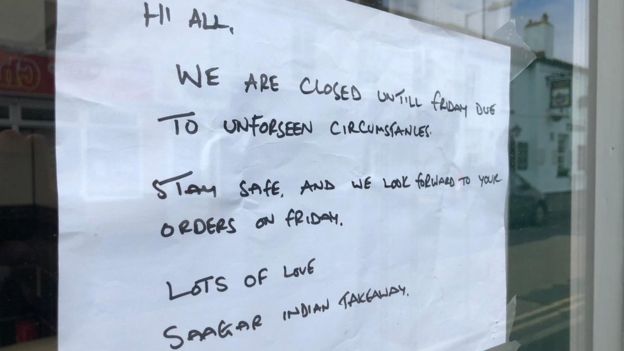 HI ALL,
WE ARE CLOSED UNTILL FRIDAY DUE
TO UNFORSEEN CIRCUMSTANCES.
STAY SAFE, AND WE LOOK FORWARD TO YOUR
ORDERS ON FRIDAY.
LOTS OF LOVE
SAAGAR INDIAN TAKEAWAY.